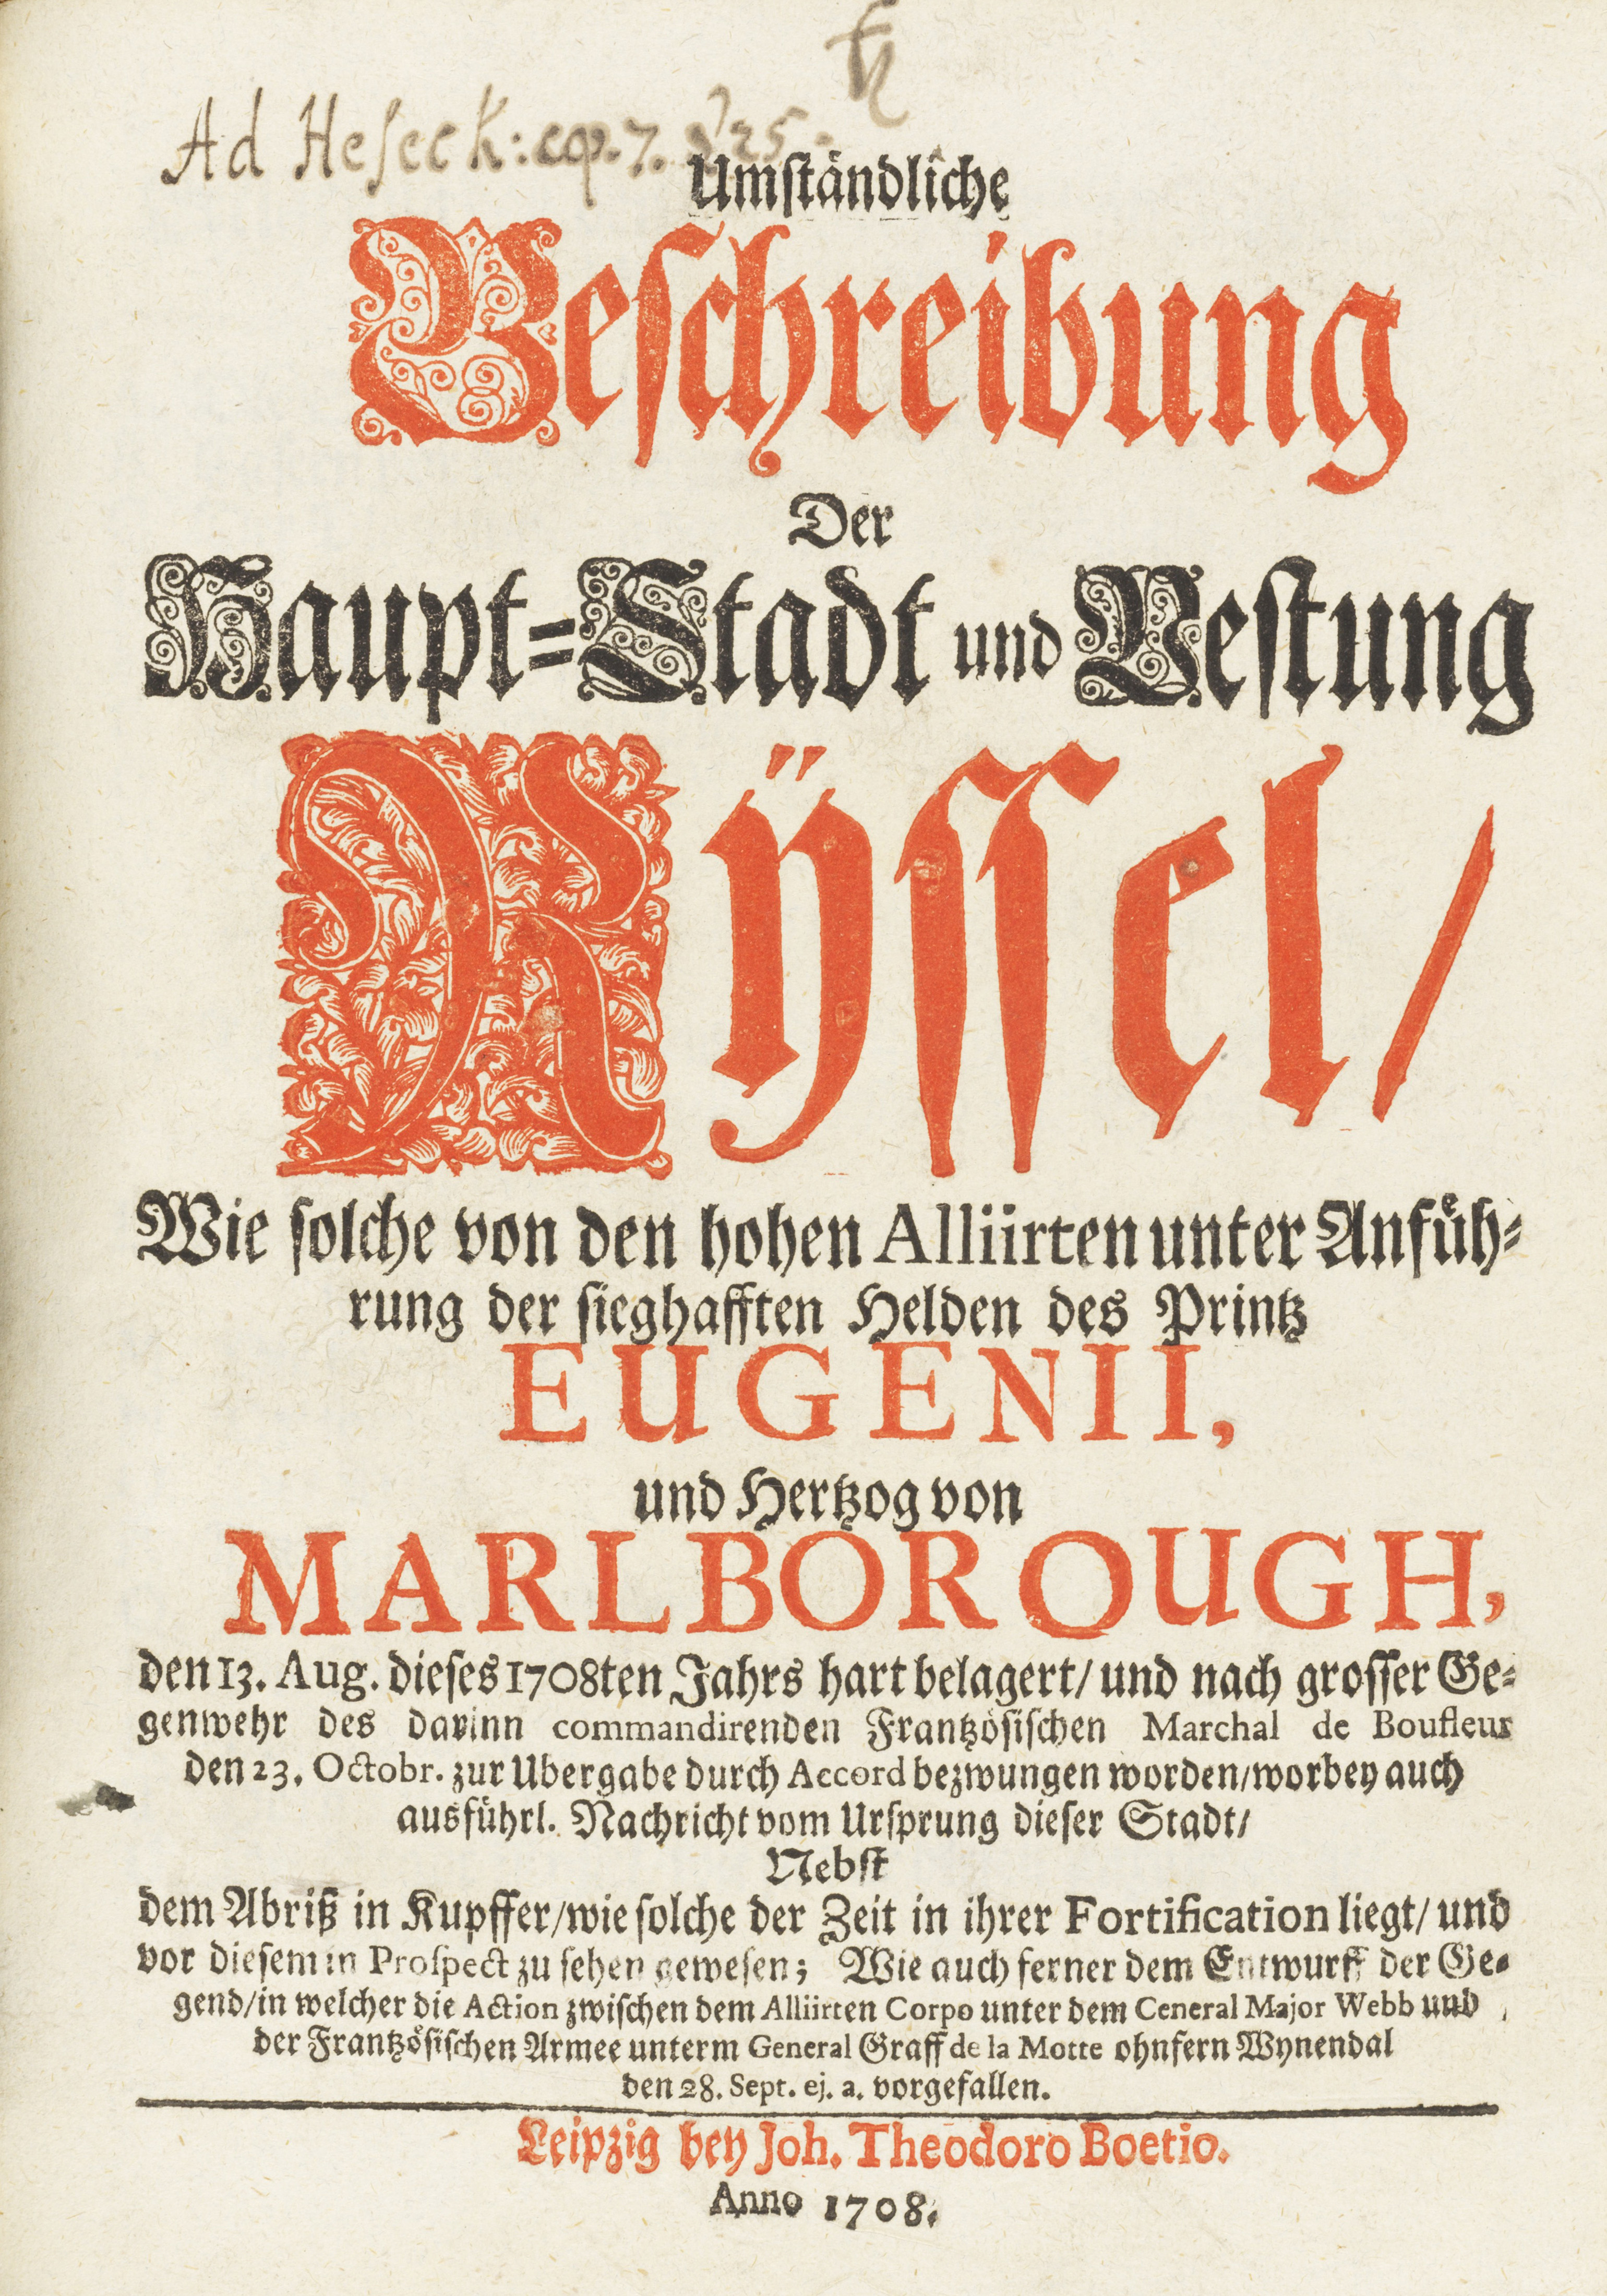 Ad Heseck: cap. 7. v 25.
Umständliche
Beschreibung
Der
Haupt-Stadt und Vestung
Ryssel/
Wie solche von den hohen Alliirten unter Anfüh-
rung der sieghafften Helden des Printz
EUGENII,
und Hertzog von
MARLBOROUGH,
den 13. Aug. dieses 1708ten Jahrs hart belagert/ und nach grosser Ge-
genwehr des darinn commandirenden Frantzösischen Marchal de Boufleur
den 23. Octobr. zur Ubergabe durch Accord bezwungen worden/worbey auch
ausführl. Nachricht vom Ursprung dieser Stadt/
Nebst
dem Abriß in Kupffer/wie solche der Zeit in ihrer Fortification liegt/ und
vor diesem in Prospect zu sehen gewesen; Wie auch ferner dem Entwurff der Ge-
gend/in welcher die Action zwischen dem Alliirten Corpo unter dem Ceneral Major Webb und
der Frantzösischen Armee unterm General Graff de la Motte ohnfern Wynendal
den 28. Sept. ej. a. vorgefallen.
Leipzig bey Joh. Theodoro Boetio.
Anno 1708.